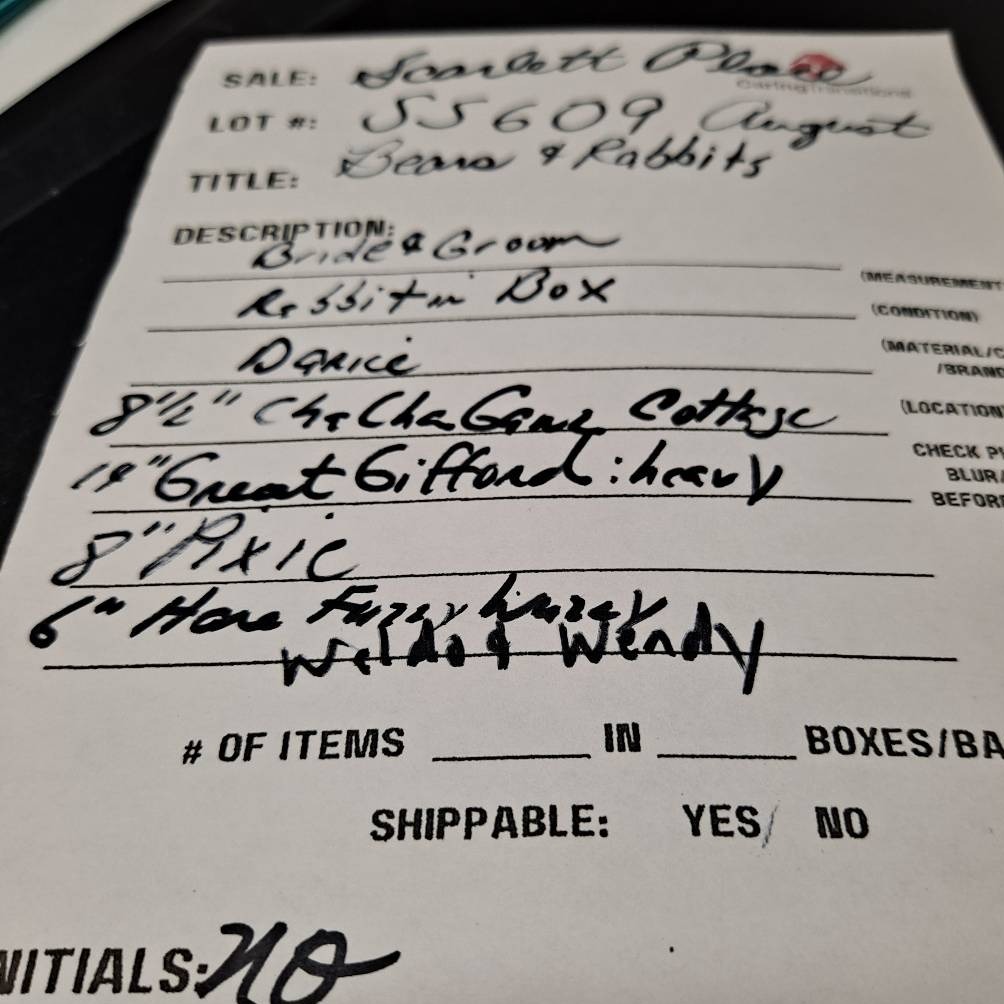 SALE: Scarlett Place
CaringTransitions
LOT #: SS609 August
TITLE: Bears & Rabbits
DESCRIPTION:
Bride & Groom
(MEASUREMENT
Rabbit in Box
(CONDITION)
Darice
(MATERIAL/C
/BRAND
8½" ChaCha Gane Cottage
(LOCATION
CHECK P
14" Great Gifford: heavy
BLUR/
BEFOR
8" Pixie
6" Hare Fuzzy Wuzzy
Waldo & Wendy
# OF ITEMS ______ IN ______ BOXES/BA
SHIPPABLE: YES/ NO
NITIALS: